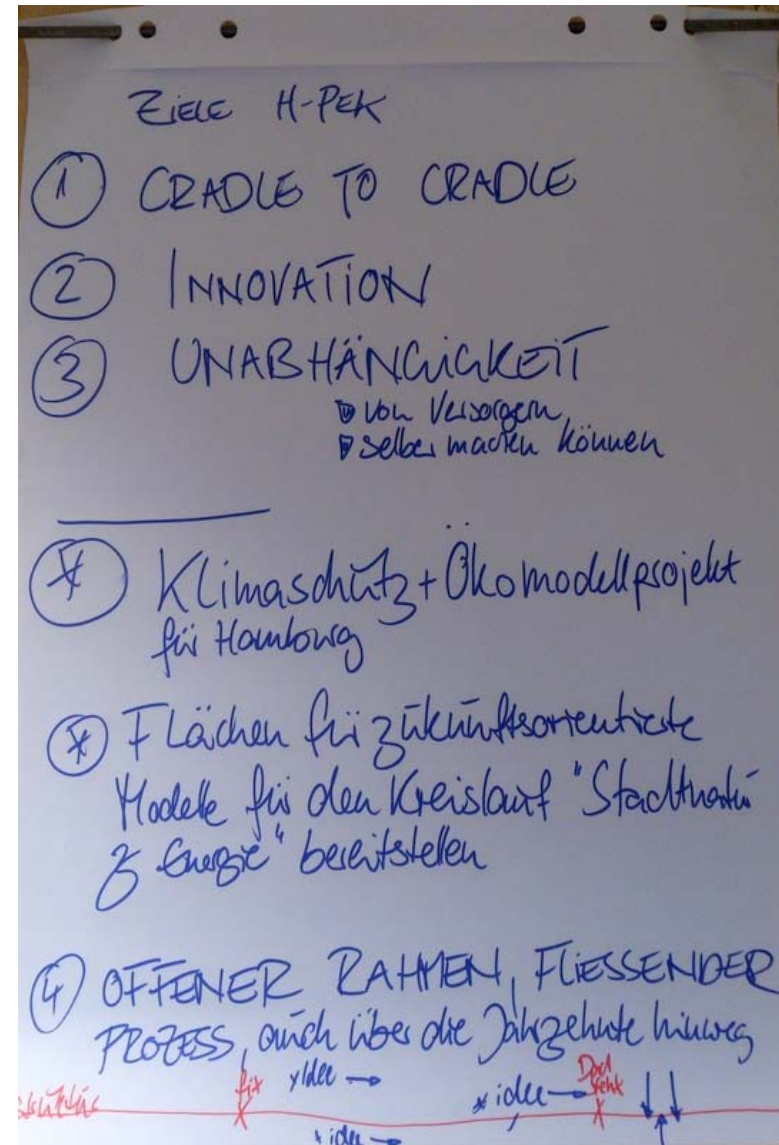 ZIELE H-PEK
1 CRADLE TO CRADLE
2 INNOVATION
3 UNABHÄNGIGKEIT
von Versorgern
selber machen können
* Klimaschutz + Ökomodellprojekt
für Hamburg
* Flächen für zukunftsorientierte
Modelle für den Kreislauf "Stadtnatur
& Energie" bereitstellen
4 OFFENER RAHMEN, FLIESSENDER
PROZESS, auch über die Jahrzehnte hinweg
fix x Idee x idee
x idee